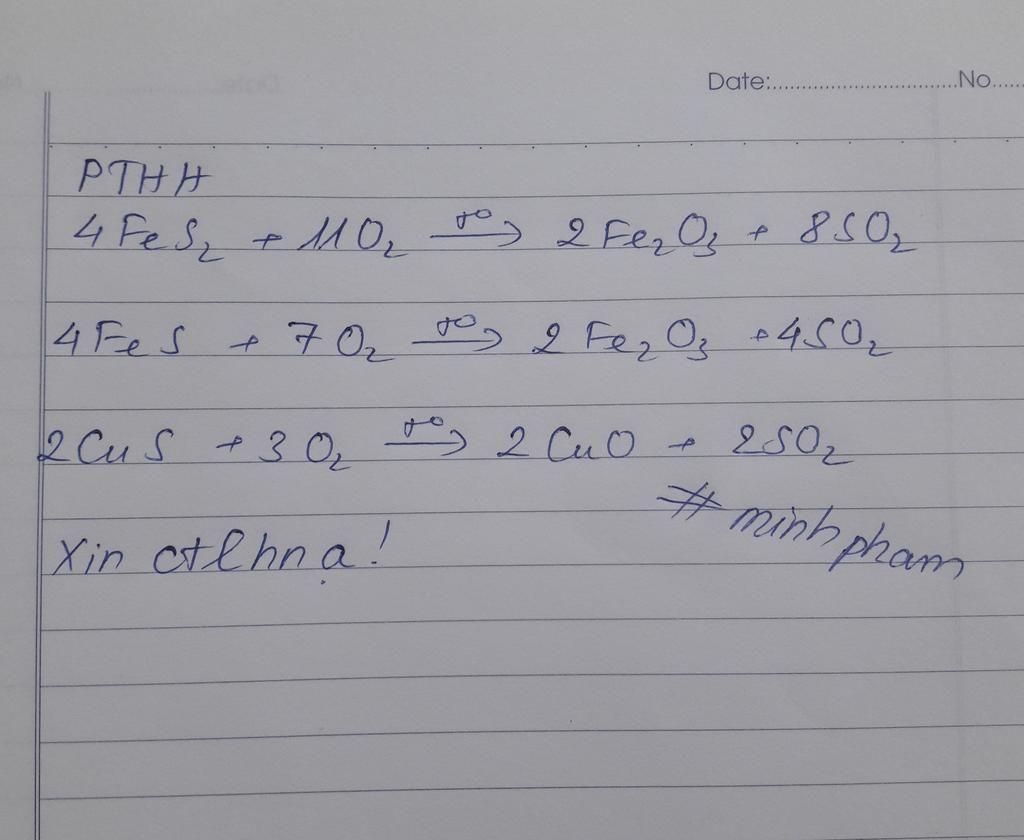 Date:..............................No.....
PTHH
4FeS₂ + 11O₂ \xrightarrow{t^o} 2Fe₂O₃ + 8SO₂
4FeS + 7O₂ \xrightarrow{t^o} 2Fe₂O₃ + 4SO₂
2CuS + 3O₂ \xrightarrow{t^o} 2CuO + 2SO₂
Xin ctlhn ạ!
# minh pham